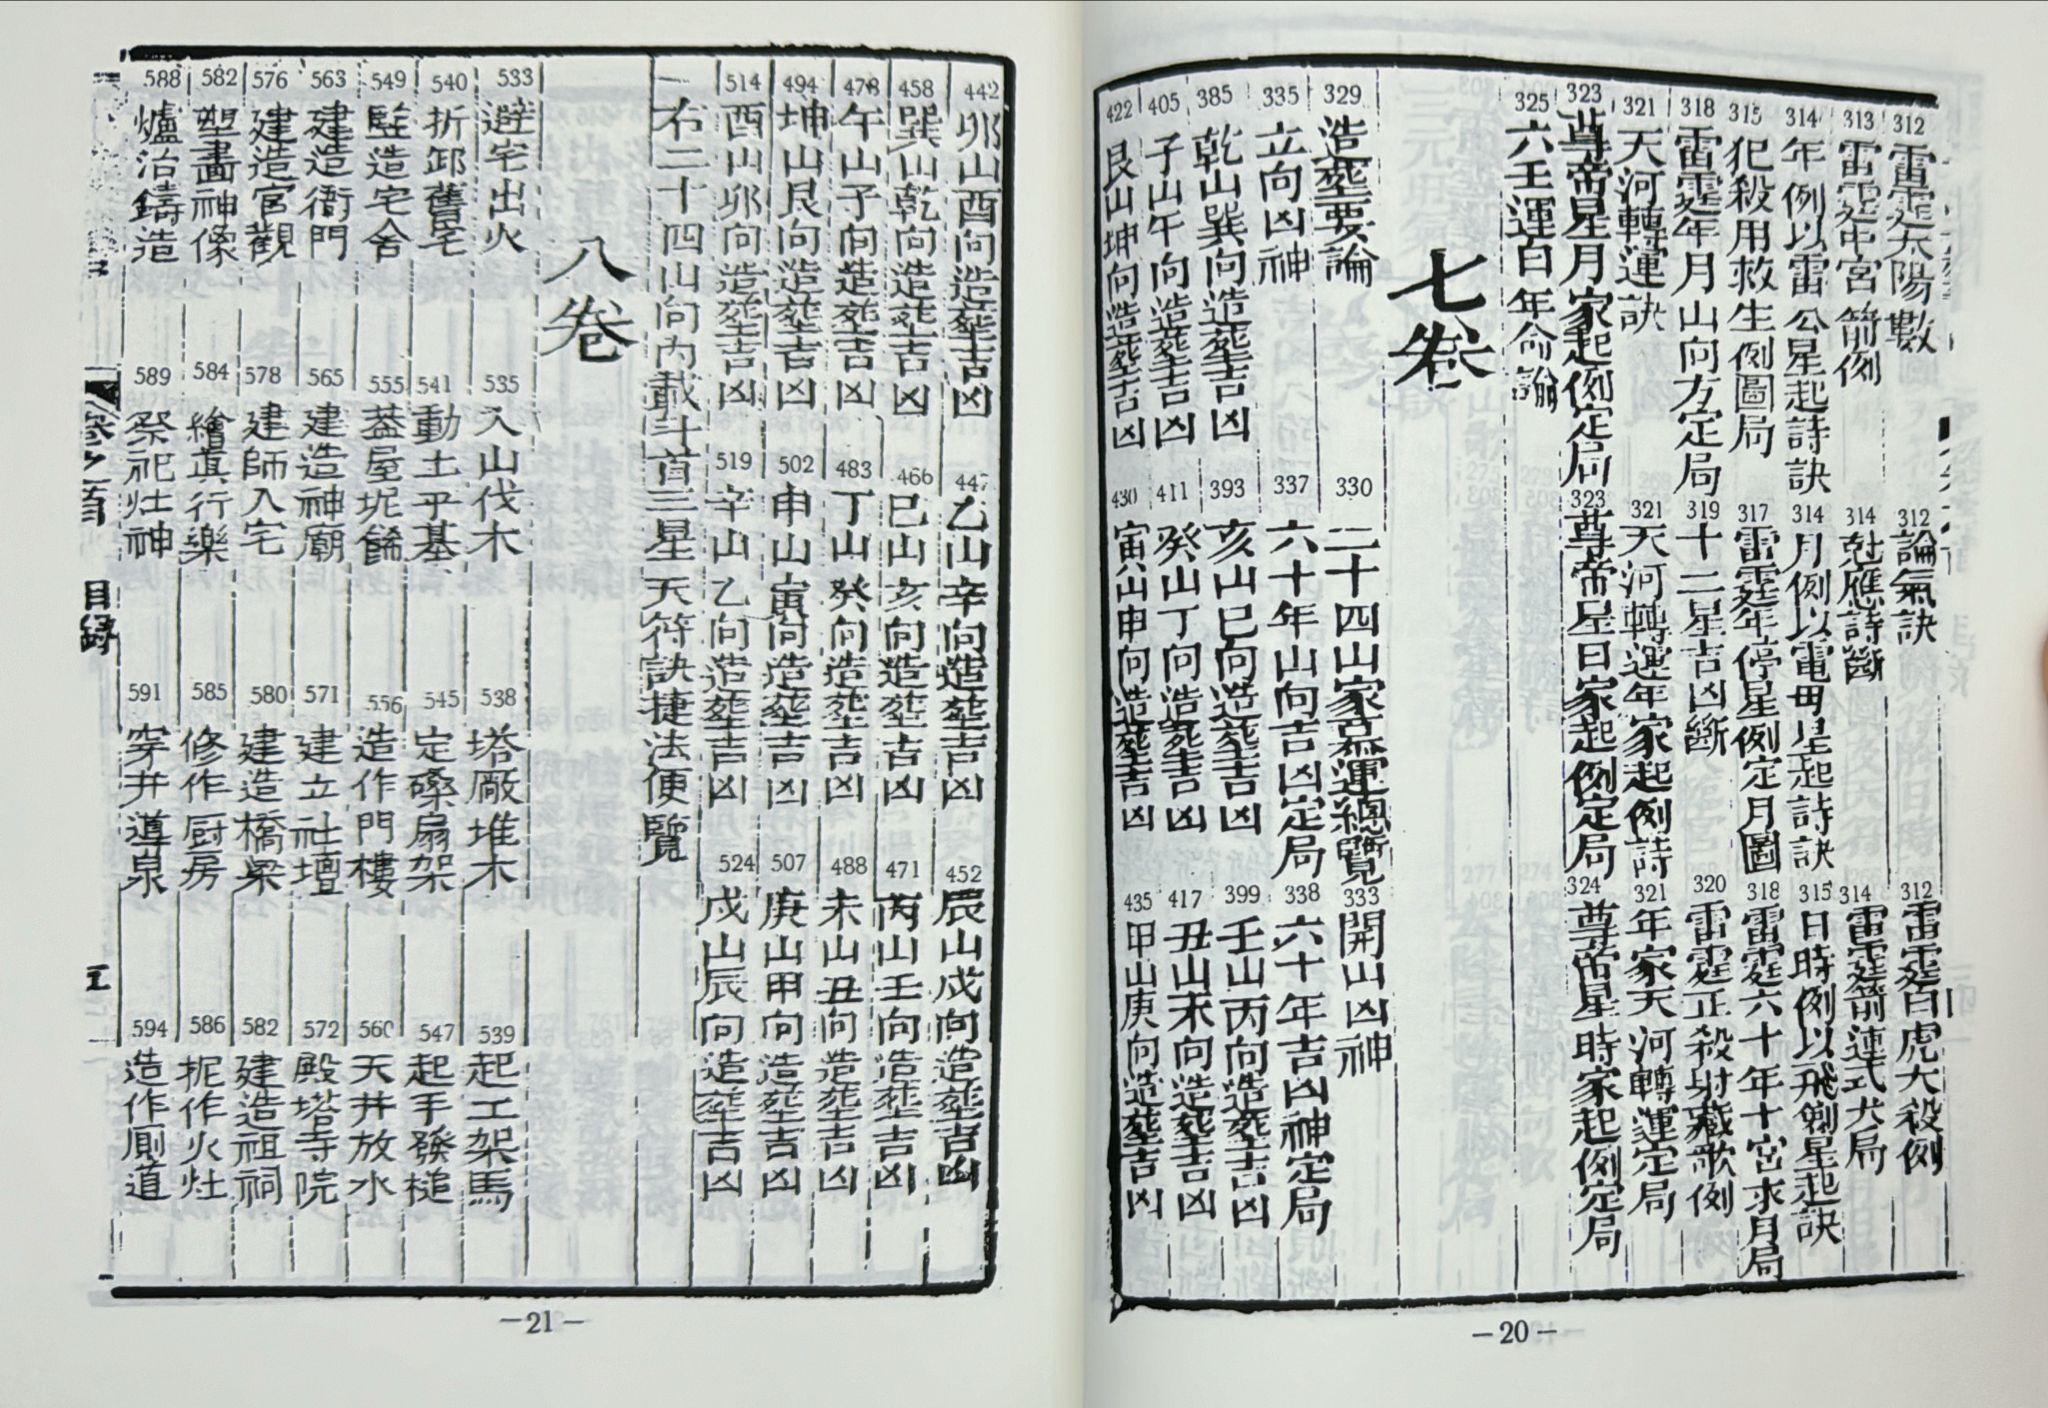 312 雷霆太陽數
312 論氣訣
312 雷霆白虎大殺例
313 雷霆年宮箭例
314 尅應詩斷
314 雷霆箭連式大局
314 年例以雷公星起詩訣
314 月例以電母星起詩訣
315 日時例以飛劍星起訣
315 犯殺用救生例圖局
317 雷霆年停星例定月圖
318 雷霆六十年十宮求月局
318 雷霆年月山向方定局
319 十二星吉凶斷
320 雷霆正殺射藏歌例
321 天河轉運訣
321 天河轉運年家起例詩
321 年家天河轉運定局
323 尊帝星月家起例定局
323 尊帝星日家起例定局
324 尊帝星時家起例定局
325 六壬運百年命論
七卷
329 造塟要論
330 二十四山家墓運總覽
333 開山凶神
335 立向凶神
337 六十年山向吉凶定局
338 六十年吉凶神定局
385 乾山巽向造塟吉凶
393 亥山巳向造塟吉凶
399 壬山丙向造塟吉凶
405 子山午向造塟吉凶
411 癸山丁向造塟吉凶
417 丑山未向造塟吉凶
422 艮山坤向造塟吉凶
430 寅山申向造塟吉凶
435 甲山庚向造塟吉凶
－20－
442 卯山酉向造塟吉凶
447 乙山辛向造塟吉凶
452 辰山戌向造塟吉凶
458 巽山乾向造塟吉凶
466 巳山亥向造塟吉凶
471 丙山壬向造塟吉凶
478 午山子向造塟吉凶
483 丁山癸向造塟吉凶
488 未山丑向造塟吉凶
494 坤山艮向造塟吉凶
502 申山寅向造塟吉凶
507 庚山甲向造塟吉凶
514 酉山卯向造塟吉凶
519 辛山乙向造塟吉凶
524 戌山辰向造塟吉凶
右二十四山向內載斗首三星天符訣捷法便覽
八卷
533 避宅出火
535 入山伐木
538 塔廠堆木
539 起工架馬
540 折卸舊宅
541 動土平基
545 定磉扇架
547 起手發槌
549 監造宅舍
555 葢屋坭餙
556 造作門樓
560 天井放水
563 建造衙門
565 建造神廟
571 建立社壇
572 殿塔寺院
576 建造官觀
578 建師入宅
580 建造橋梁
582 建造祖祠
582 塑畫神像
584 繪眞行樂
585 修作厨房
586 抳作火灶
588 爐冶鑄造
589 祭祀灶神
591 穿井導泉
594 造作厠道
卷之首 目録
－21－